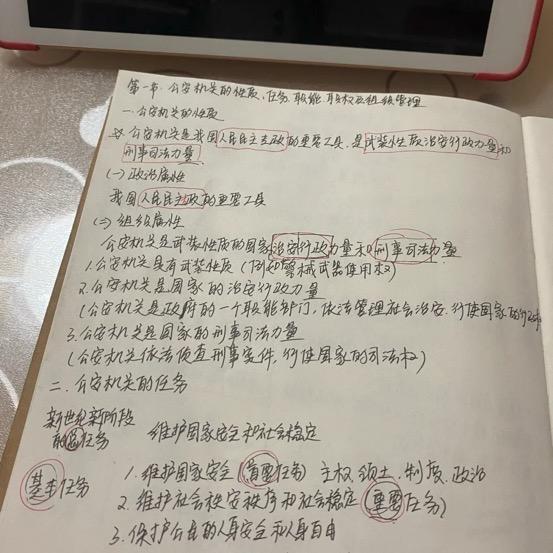 第一节.公安机关的性质、任务、职能、职权及组织管理
一.公安机关的性质
公安机关是我国人民民主专政的重要工具,是武装性质治安行政力量和
刑事司法力量
(一)政治属性
我国人民民主政的重要工具
(二)组织属性
公安机关是武装性质的国家治安行政力量和刑事司法力量
1.公安机关具有武装性质(例如警械武器使用权)
2.公安机关是国家的治安行政力量
(公安机关是政府的一个职能部门,依法管理社会治安.行使国家的行政
3.公安机关是国家的刑事司法力量
(公安机关依法侦查刑事案件.行使国家的司法权)
二.公安机关的任务
新世纪新阶段
的总任务 维护国家安全和社会稳定
基本任务
1.维护国家安全(首要任务) 主权.领土.制度.政治
2.维护社会治安秩序和社会稳定(重要任务)
3.保护公民的人身安全和人身自由